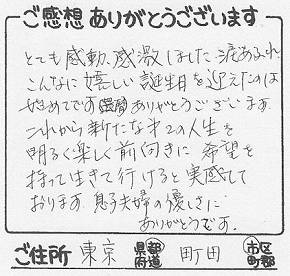 ご感想ありがとうございます
とても感動、感激しました 涙あふれ
こんなに嬉しい誕生日を迎えたのは
始めてです ありがとうございます
これから新たな才2の人生を
明るく楽しく前向きに 希望を
持って生きて行けると実感して
おります 息子夫婦の優しさに
ありがとうです.
ご住所 東京 都道府県 町田 市区町郡